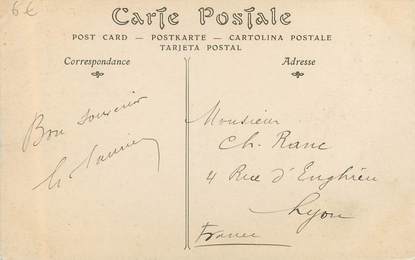 6€
Carte Postale
POST CARD — POSTKARTE — CARTOLINA POSTALE
TARJETA POSTAL
Correspondance
Adresse
Bon souvenir
Monsieur
Ch. Ranc
4 Rue d'Enghien
Lyon
France